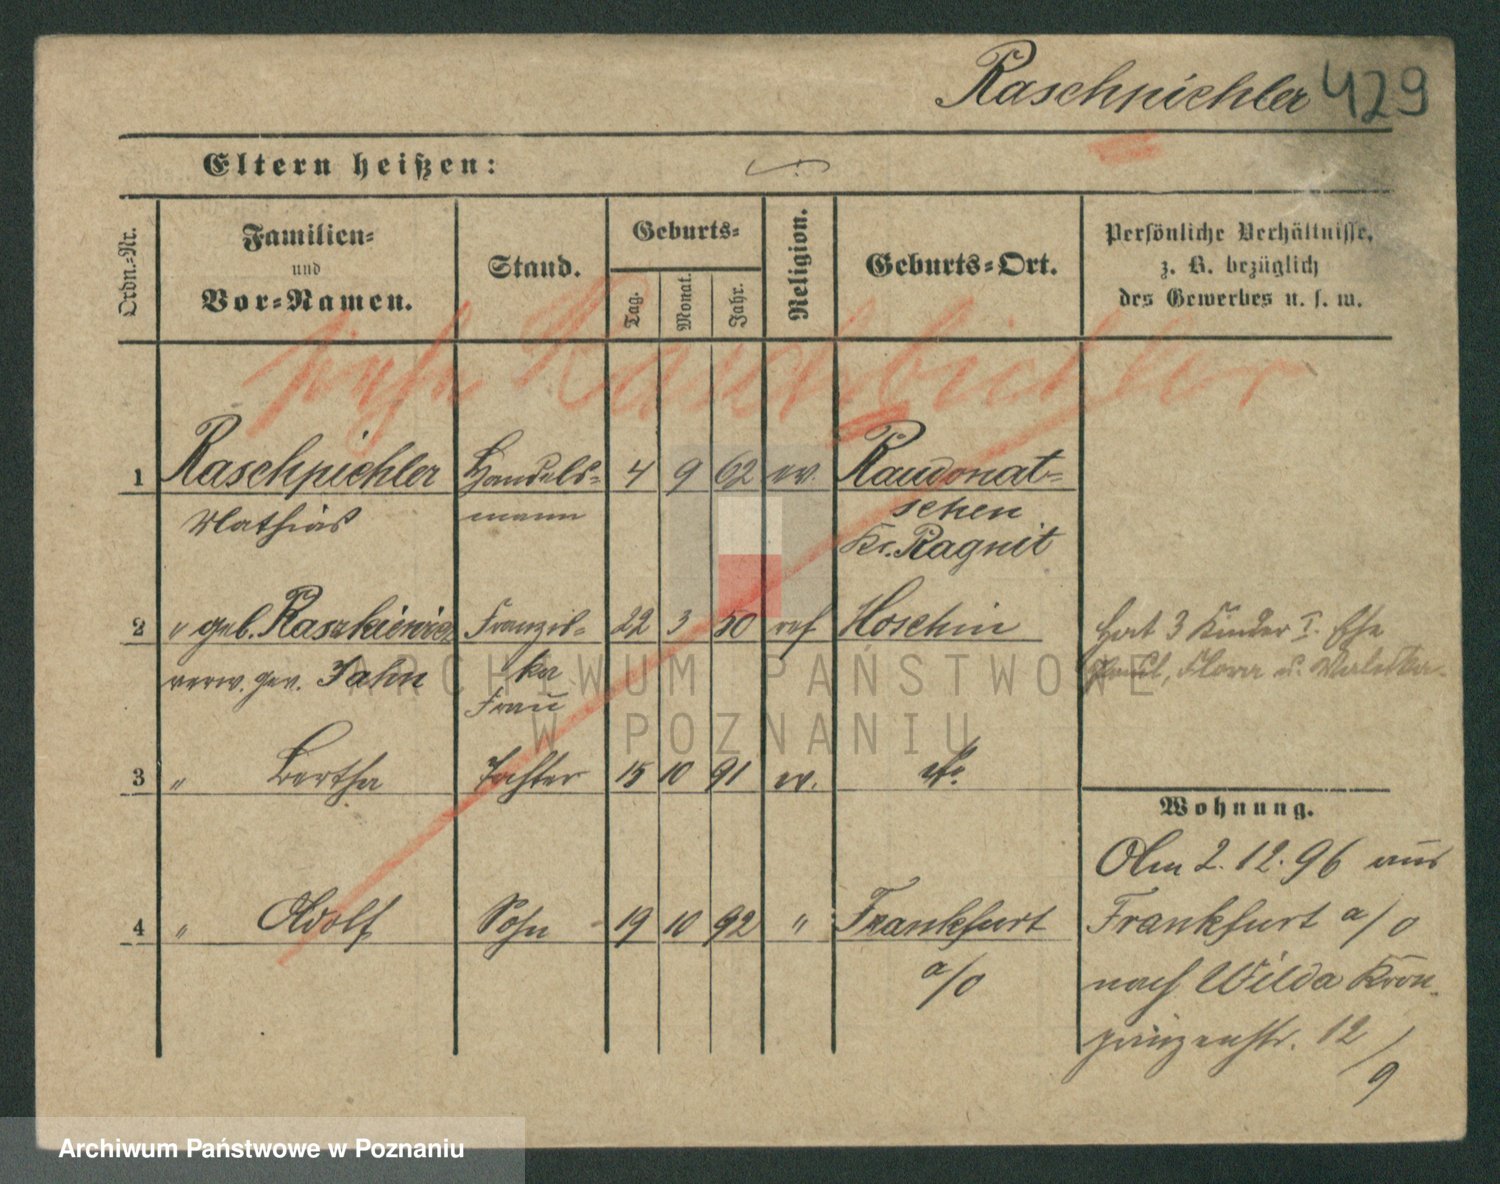 Raschpichler 429
Eltern heißen:
Ordn.-Nr.
Familien-
und
Vor-Namen.
Stand.
Geburts-
Tag.
Monat.
Jahr.
Religion.
Geburts-Ort.
Persönliche Verhältnisse,
z. B. bezüglich
des Gewerbes u. s. w.
siehe Raschbichler
1 Raschpichler Handels- 4 9 62 ev. Raudonat-
Mathias mann schen
Kr. Ragnit
2 " geb. Raszkiewicz Franzis- 22 3 50 ref Hat 3 Kinder I. Ehe
verw. gew. Jahn ka Paul, Flora u.
Frau
3 " Bertha Tochter 15 10 91 ev. do.
Wohnung.
4 " Adolf Sohn 19 10 92 " Frankfurt
a/O
Am 2.12.96 aus
Frankfurt a/O
nach Wilda Kron-
prinzenstr. 12/9
ARCHIWUM PAŃSTWOWE
W POZNANIU
Archiwum Państwowe w Poznaniu